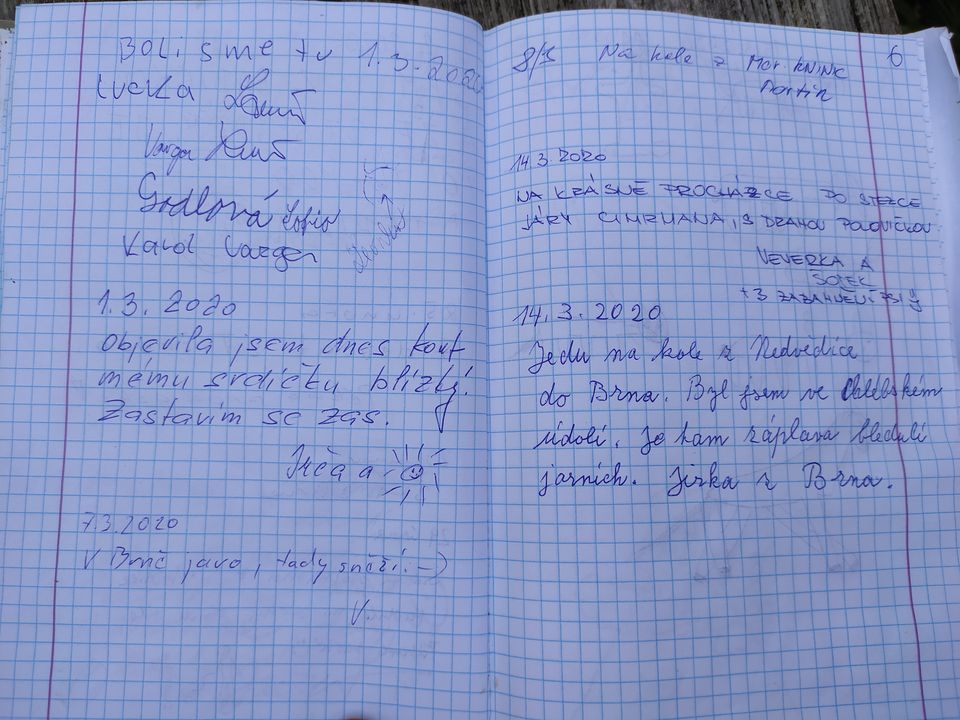 BOLI SME TU 1.3.2020
LUCKA
Varga
Godlová Sofia
Karol Varga
1.3.2020
Objevila jsem dnes kout
mému srdíčku blízký.
Zastavím se zas.
Irča a
7.3.2020
V Brně jaro, tady sněží :-)
V.
6
8/3 Na kole z Mor. KNINIC
Martin
14.3.2020
NA KRÁSNÉ PROCHÁZCE PO STEZCE
JÁRY CIMRMANA, S DRAHOU POLOVIČKOU
VEVERKA A
+3
14.3.2020
Jedu na kole z Nedvědice
do Brna. Byl jsem ve Chlébském
údolí. Je tam záplava bledulí
jarních. Jirka z Brna.